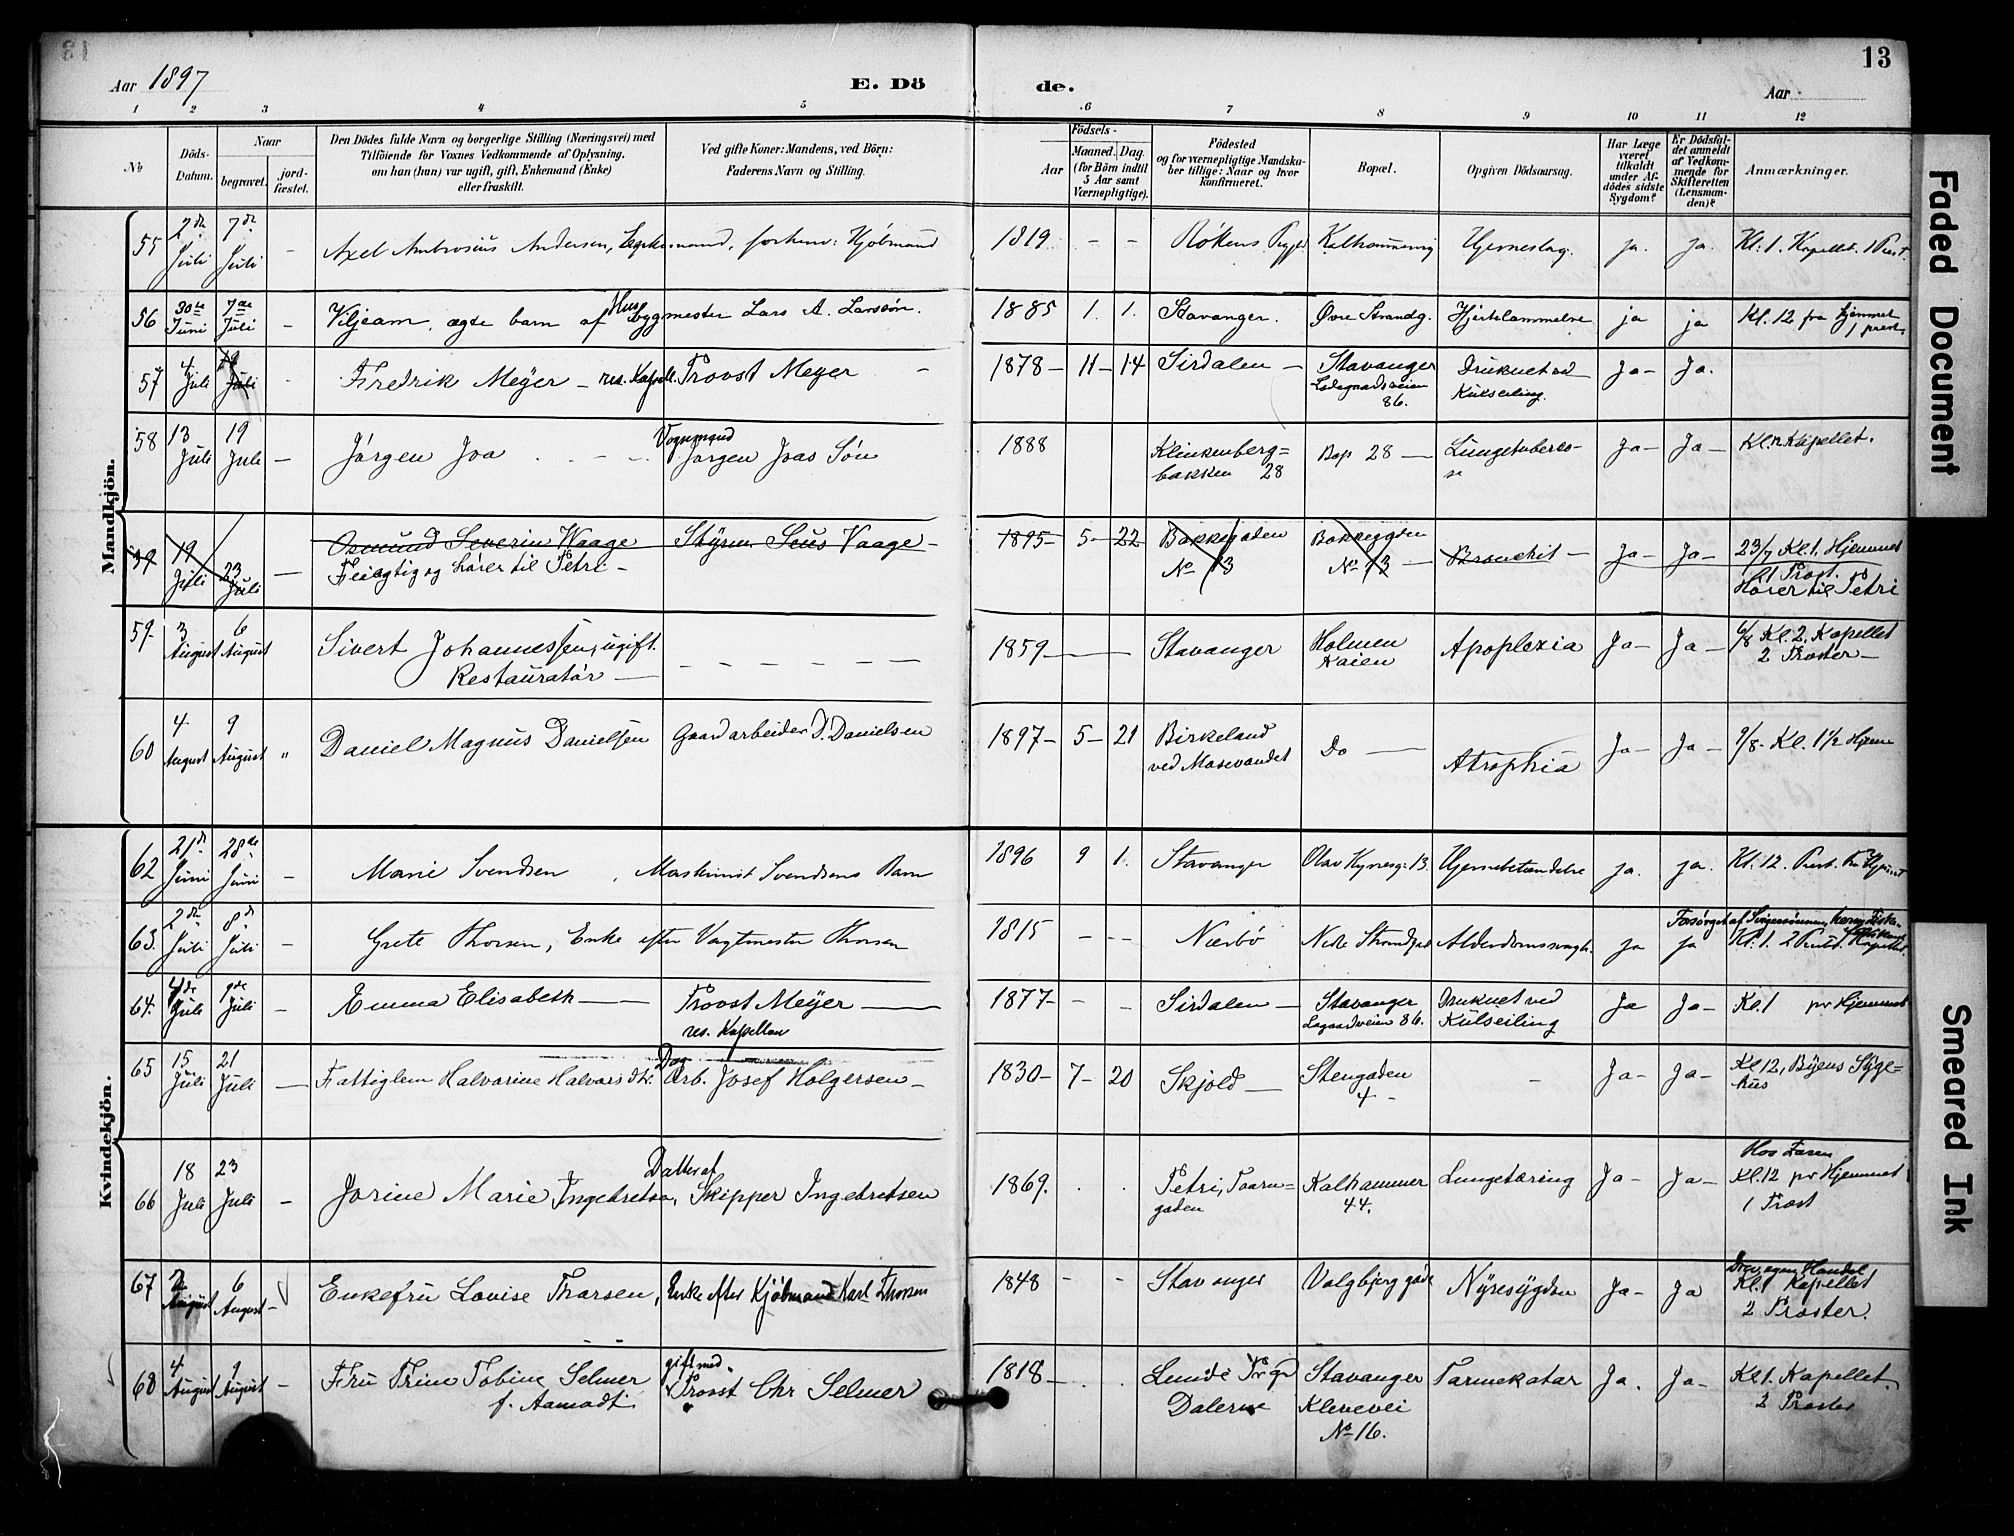 13
Aar 1897
E. Dö de.
Aar
1 2 3 4 5 6 7 8 9 10 11 12
No
Döds-Datum.
Naar
begravet.
jord-fæstet.
Den Dödes fulde Navn og borgerlige Stilling (Næringsvei) med
Tilföiende for Voxnes Vedkommende af Oplysning,
om han (hun) var ugift, gift, Enkemand (Enke)
eller fraskilt.
Ved gifte Koner: Mandens, ved Börn:
Faderens Navn og Stilling.
Födsels-
Aar
Maaned. Dag.
(for Börn indtil
5 Aar samt
Værnepligtige).
Födested
og for værnepligtige Mandska-
ber tillige: Naar og hvor
konfirmeret.
Bopæl.
Opgiven Dödsaarsag.
Har Læge
været
tilkaldt
under Af-
dödes sidste
Sygdom?
Er Dödsfal-
det anmeldt
af Vedkom-
mende for
Skifteretten
(Lensman-
den)?
Anmærkninger.
Mandkjön.
55 2de Juli 7de Juli – Axel Ambrosius Andersen, forhen: Kjøbmand 1819 – – Kalhammervig Hjerneslag. ja. ja. Kl: 1. Kapellet. 1 Præst.
56 30te Juni 7de Juli – Viljeam, ægte barn af Husbygmester Lars A. Larssøn. 1885 1. 1. Stavanger. Øvre Strandg. Hjertelammelse ja ja Kl. 12 fra Hjemmet
1 prest.
57 4 Juli 19 Juli - Fredrik Meyer – res. Kapell. Provst Meyer – 1878 – 11 – 14 Sirdalen – Stavanger
Ladegaardsveien
86.
Druknet ved
Kulseiling.
Ja – Ja.
58 13 Juli 19 Juli – Jørgen Joa Vognmand
Jørgen Joas Søn 1888 Klinkenberg=
bakken 28 Bop 28 – Lungetuberklo-
se Ja – Ja – Kl. 12 Kapellet.
59 19 Juli 23 Juli – Osmund Severin Waage Styrm. Vaage –
Feilagtig og hører til Petri –
1895 – 5 – 22 Bakkegaden
No 13 Bakkegaden
No 13 – Bronchit – Ja – Ja – 23/7 Kl. 1. Hjemmet
1 Præst.
Hører til Petri
59. 3 August 6 August Sivert Johannessen, ugift.
Restauratør – – – – – – – 1859 – Stavanger Holmen
Kaien Apoplexia Ja – Ja – 6/8 Kl. 2. Kapellet
2 Præster –
60 4 August 9 August „ Daniel Magnus Danielsen Gaardarbeider D. Danielsen 1897 – 5 – 21 Birkeland
ved Mosevandet Do – Atrophia Ja – Ja – 9/8 – Kl. 1½ Hjem
Kvindekjön.
62 21de Juni 28de Juni – Marie Svendsen, Maskinist Svendsens Barn 1896 9 1. Stavanger Olav Kyrresg. 13. Hjernebetændelse ja. ja. Kl: 12. Præst. Fr Hjemmet
63. 2de Juli 8de Juli – Grete Thorsen, Enke efter Vagtmester Thorsen 1815 – – Nærbö Nedre Strandgad Alderdomssvagh. ja ja Forsörget af
Kl: 1. 2 Præst. Kapellet.
64. 4de Juli 9de Juli – Emma Elisabeth – Provst Meyer –
res. Kapellan 1877 – – – Sirdalen – Stavanger
Lagaardsveien 86. Druknet ved
Kulseiling Ja Ja – Kl. 1 pr Hjemmet
65 15 Juli 21 Juli – Fattiglem Halvarine Halvarsdtr. Dag
arb. Josef Holgersen – 1830 – 7 – 20 Skjold – Stengaden
4 – – Ja – Ja – Kl 12, Byens Syge=
hus
66 18 Juli 23 Juli – Jorine Marie Ingebretsen, Datter af
Skipper Ingebretsen 1869. . . Petri, Taarn=
gaden Kalhammer
44. Lungetæring Ja – Ja – Hos Faren
Kl. 12 pr Hjemmet
1 Præst
67 2 August 6 August – Enkefru Lovise Thorsen, Enke efter Kjöbmand Karl Thorsen 1848 – – Stavanger Valgbjerggade Nyresygdom Ja – Ja Drev egen Handel
Kl. 1 Kapellet
2 Præster.
68 4 August 9 August – Fru Trine Tobine Selmer
f. Aamodt gift med
Provst Chr Selmer 1818 – . . Lunde Prgd
Dalerne Stavanger
Klevevei
No 16. Tarmekatar Ja. Ja – Kl 1. Kapellet.
2 Præster
Faded Document
Smeared Ink